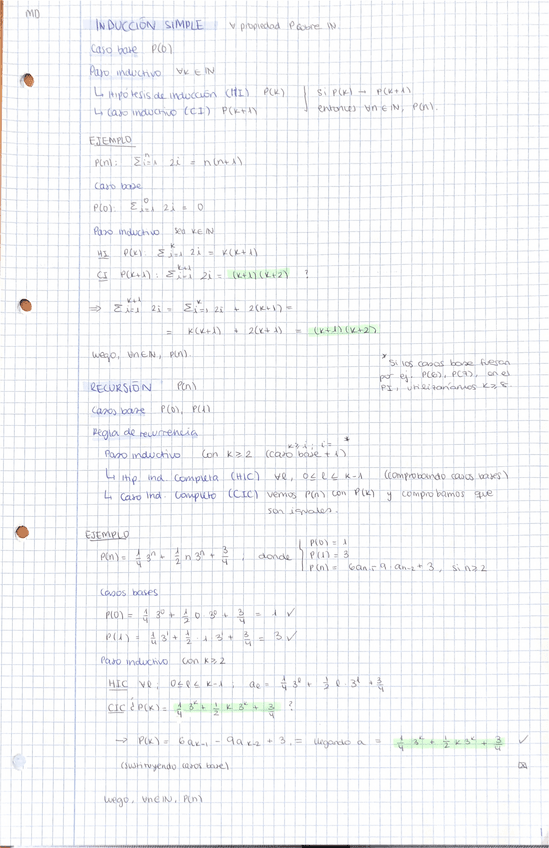 MD
INDUCCIÓN SIMPLE ∀ propiedad P sobre ℕ.
Caso base P(0)
Paso inductivo ∀k ∈ ℕ
↳ Hipótesis de inducción (HI) P(k) | Si P(k) → P(k+1)
↳ Caso inductivo (CI) P(k+1) | entonces ∀n ∈ ℕ, P(n).
EJEMPLO
P(n): Σⁿᵢ₌₁ 2i = n(n+1)
Caso base
P(0): Σ⁰ᵢ₌₁ 2i = 0
Paso inductivo sea k∈ℕ
HI P(k): Σᵏᵢ₌₁ 2i = k(k+1)
CI P(k+1): Σᵏ⁺¹ᵢ₌₁ 2i = (k+1)(k+2) ?
⇒ Σᵏ⁺¹ᵢ₌₁ 2i = Σᵏᵢ₌₁ 2i + 2(k+1) =
= k(k+1) + 2(k+1) = (k+1)(k+2)
Luego, ∀n∈ℕ, P(n).
* Si los casos base fueran
por ej. P(6), P(7), en el
PI, utilizaríamos k≥8.
RECURSIÓN P(n)
Casos base P(0), P(1)
Regla de recurrencia
Paso inductivo con k≥2 (caso base + 1) *
↳ Hip. ind. Completa (HIC) ∀ℓ, 0≤ℓ≤k-1 (comprobando casos bases)
↳ Caso Ind. Completo (CIC) vemos P(n) con P(k) y comprobamos que
son iguales.
EJEMPLO
P(n) = 1/4 3ⁿ + 1/2 n 3ⁿ + 3/4, donde
P(0) = 1
P(1) = 3
P(n) = 6aₙ₋₁ - 9·aₙ₋₂ + 3, si n≥2
Casos bases
P(0) = 1/4 3⁰ + 1/2 0 3⁰ + 3/4 = 1 ✓
P(1) = 1/4 3¹ + 1/2 · 1 3¹ + 3/4 = 3 ✓
Paso inductivo con k≥2
HIC ∀ℓ, 0≤ℓ≤k-1, aℓ = 1/4 3ℓ + 1/2 ℓ · 3ℓ + 3/4
CIC ¿P(k) = 1/4 3ᵏ + 1/2 k 3ᵏ + 3/4 ?
→ P(k) = 6aₖ₋₁ - 9aₖ₋₂ + 3, = llegando a = 1/4 3ᵏ + 1/2 k 3ᵏ + 3/4 ✓
(sustituyendo casos base)
Luego, ∀n∈ℕ, P(n)
1